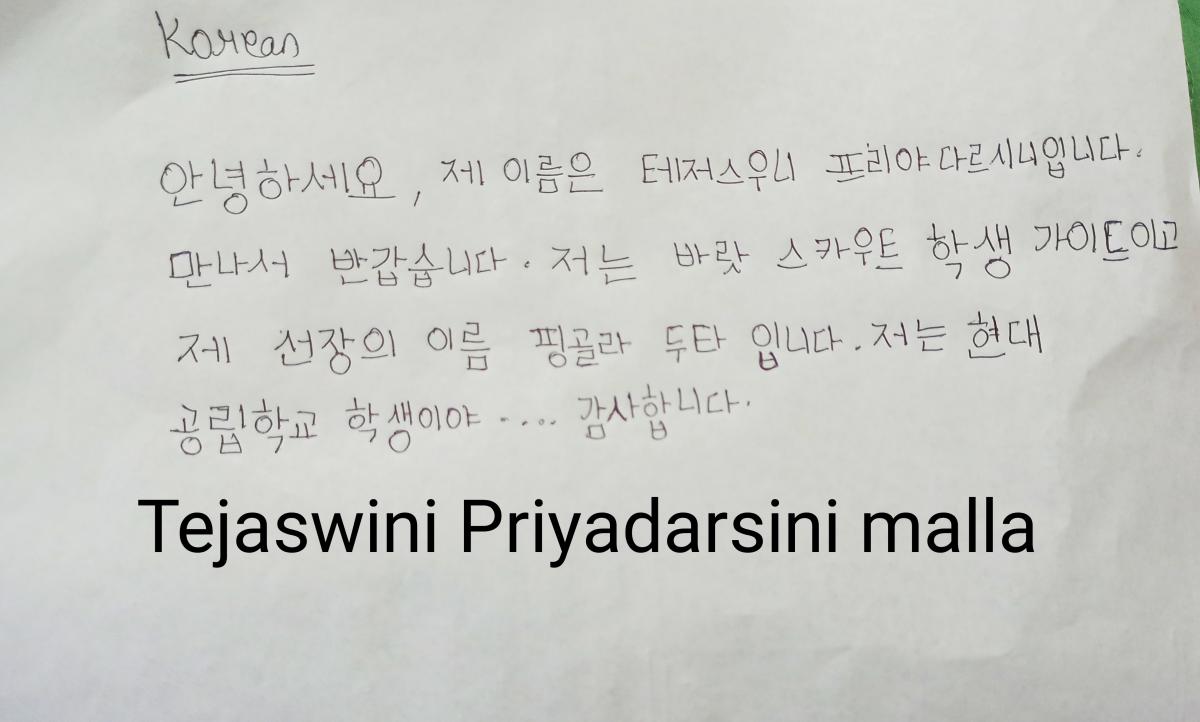 Korean
안녕하세요, 제 이름은 테저스우니 프리야다르시니입니다.
만나서 반갑습니다. 저는 바랏 스카우트 학생 가이드이고
제 선장의 이름 핑골라 두타 입니다. 저는 현대
공립학교 학생이야 ..... 감사합니다.
Tejaswini Priyadarsini malla